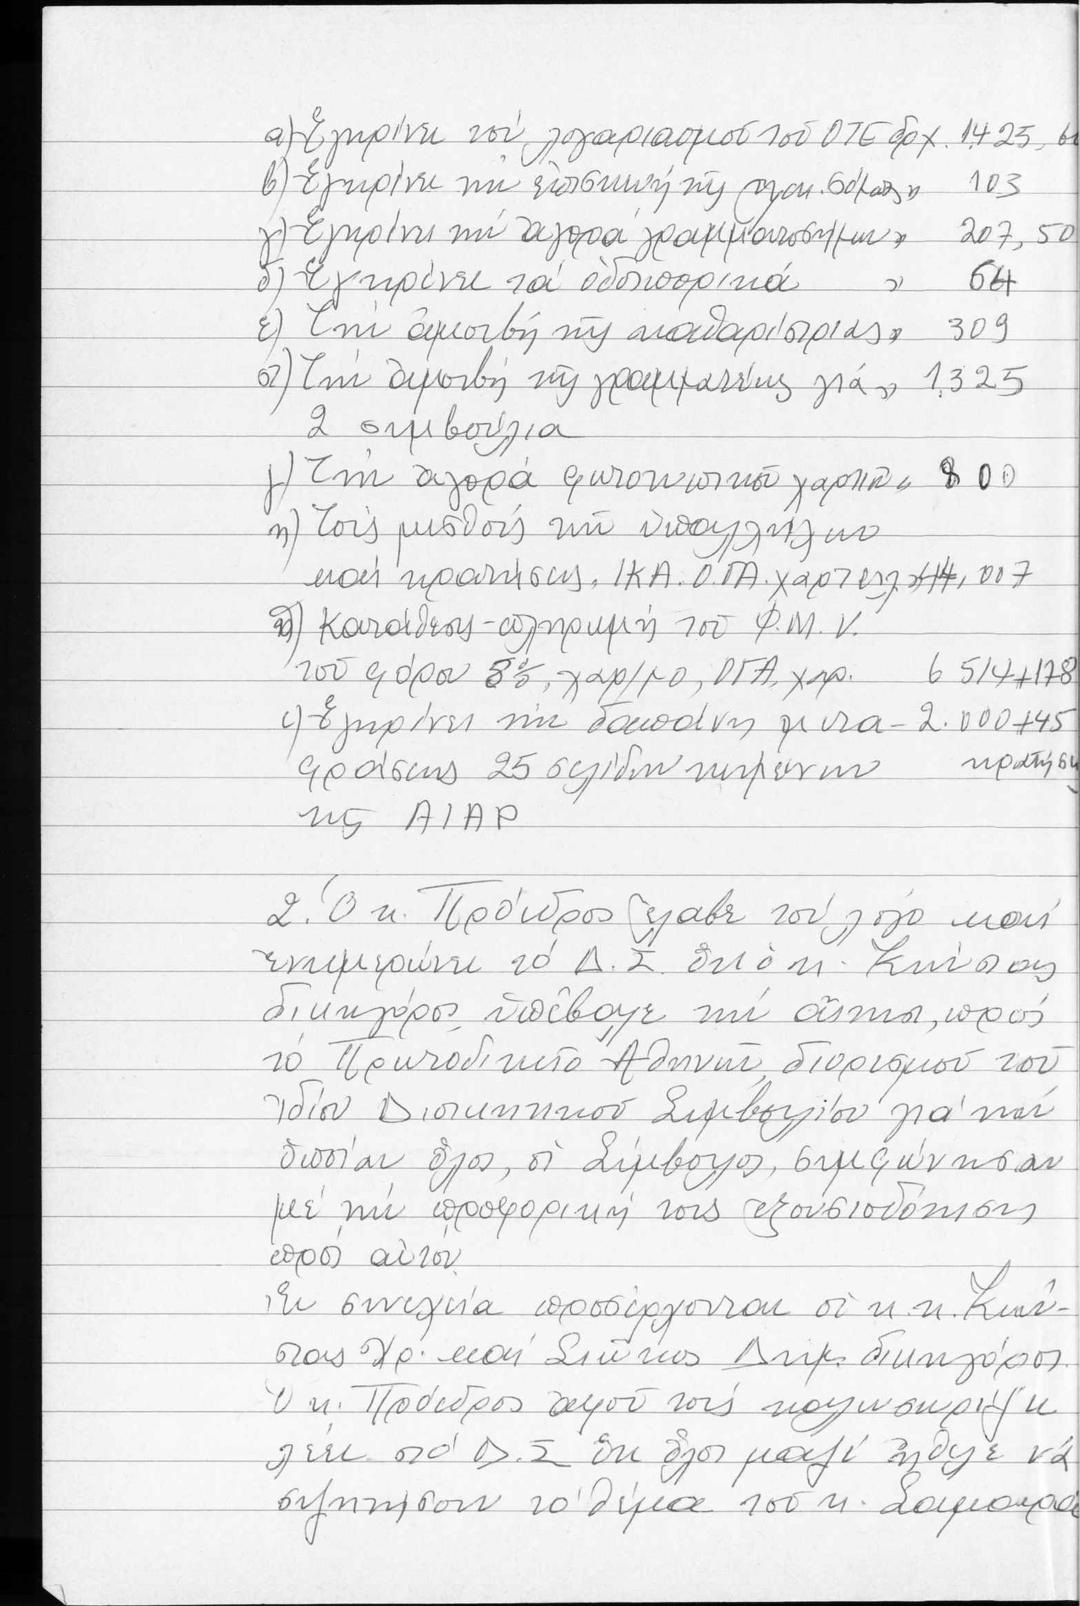 α) Ἐγκρίνει τόν λογαριασμό τοῦ ΟΤΕ δρχ. 1425,
β) Ἐγκρίνει τήν ἐπισκευή τῆς ηλεκ. σόμπας » 103
γ) Ἐγκρίνει τήν ἀγορά γραμματοσήμων » 207,50
δ) Ἐγκρίνει τά ὁδοιπορικά » 64
ε) Τήν ἀμοιβή τῆς καθαρίστριας » 309
στ) Τήν ἀμοιβή τῆς γραμματέως γιά » 1.325
2 συμβούλια
γ) Τήν ἀγορά φωτοτυπικοῦ χαρτιοῦ » 800
η) Τούς μισθούς τῶν ὑπαλλήλων
καί κρατήσεις, ΙΚΑ. Ο.ΓΑ. χαρτ 44,007
θ) Καταθέσεις - πληρωμή τοῦ Φ.Μ.Υ.
τοῦ φόρου 8%, χαρ/μο, ΟΓΑ, χαρ. 6 514+178
ι) Ἐγκρίνει τήν δαπάνη μετα- 2.000+45
φράσεως 25 σελίδων κειμένων κρατήσεις
τῆς ΑΙΑΡ
2. Ὁ κ. Πρόεδρος ἔλαβε τόν λόγο καί
ἐνημερώνει τό Δ.Σ. ὅτι ὁ κ. Κιούσης
δικηγόρος ὑπέβαλε τήν αἴτηση, πρός
τό Πρωτοδικεῖο Ἀθηνῶν, διορισμοῦ τοῦ
ἰδίου Διοικητικοῦ Συμβουλίου γιά τήν
ὁποίαν ὅλοι, οἱ Σύμβουλοι, συμφώνησαν
μέ τήν προφορική τους ἐξουσιοδότηση
πρός αὐτόν.
Ἐν συνεχεία προσέρχονται οἱ κ.κ.
Χρ. καί Δημ. δικηγόροι.
Ὁ κ. Πρόεδρος ἀφοῦ τούς καλωσωρίζει
λέει στό Δ.Σ ὅτι ὅλοι μαζί ἦλθε νά
συζητήσουν τό θέμα τοῦ κ. Σαμαρᾶ